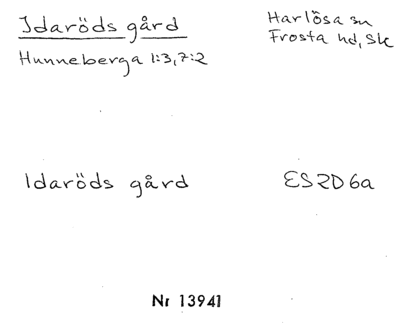 Idaröds gård
Harlösa sn
Frosta hd, Sk
Hunneberga 1:3, 7:2
Idaröds gård
ES2D6a
Nr 13941